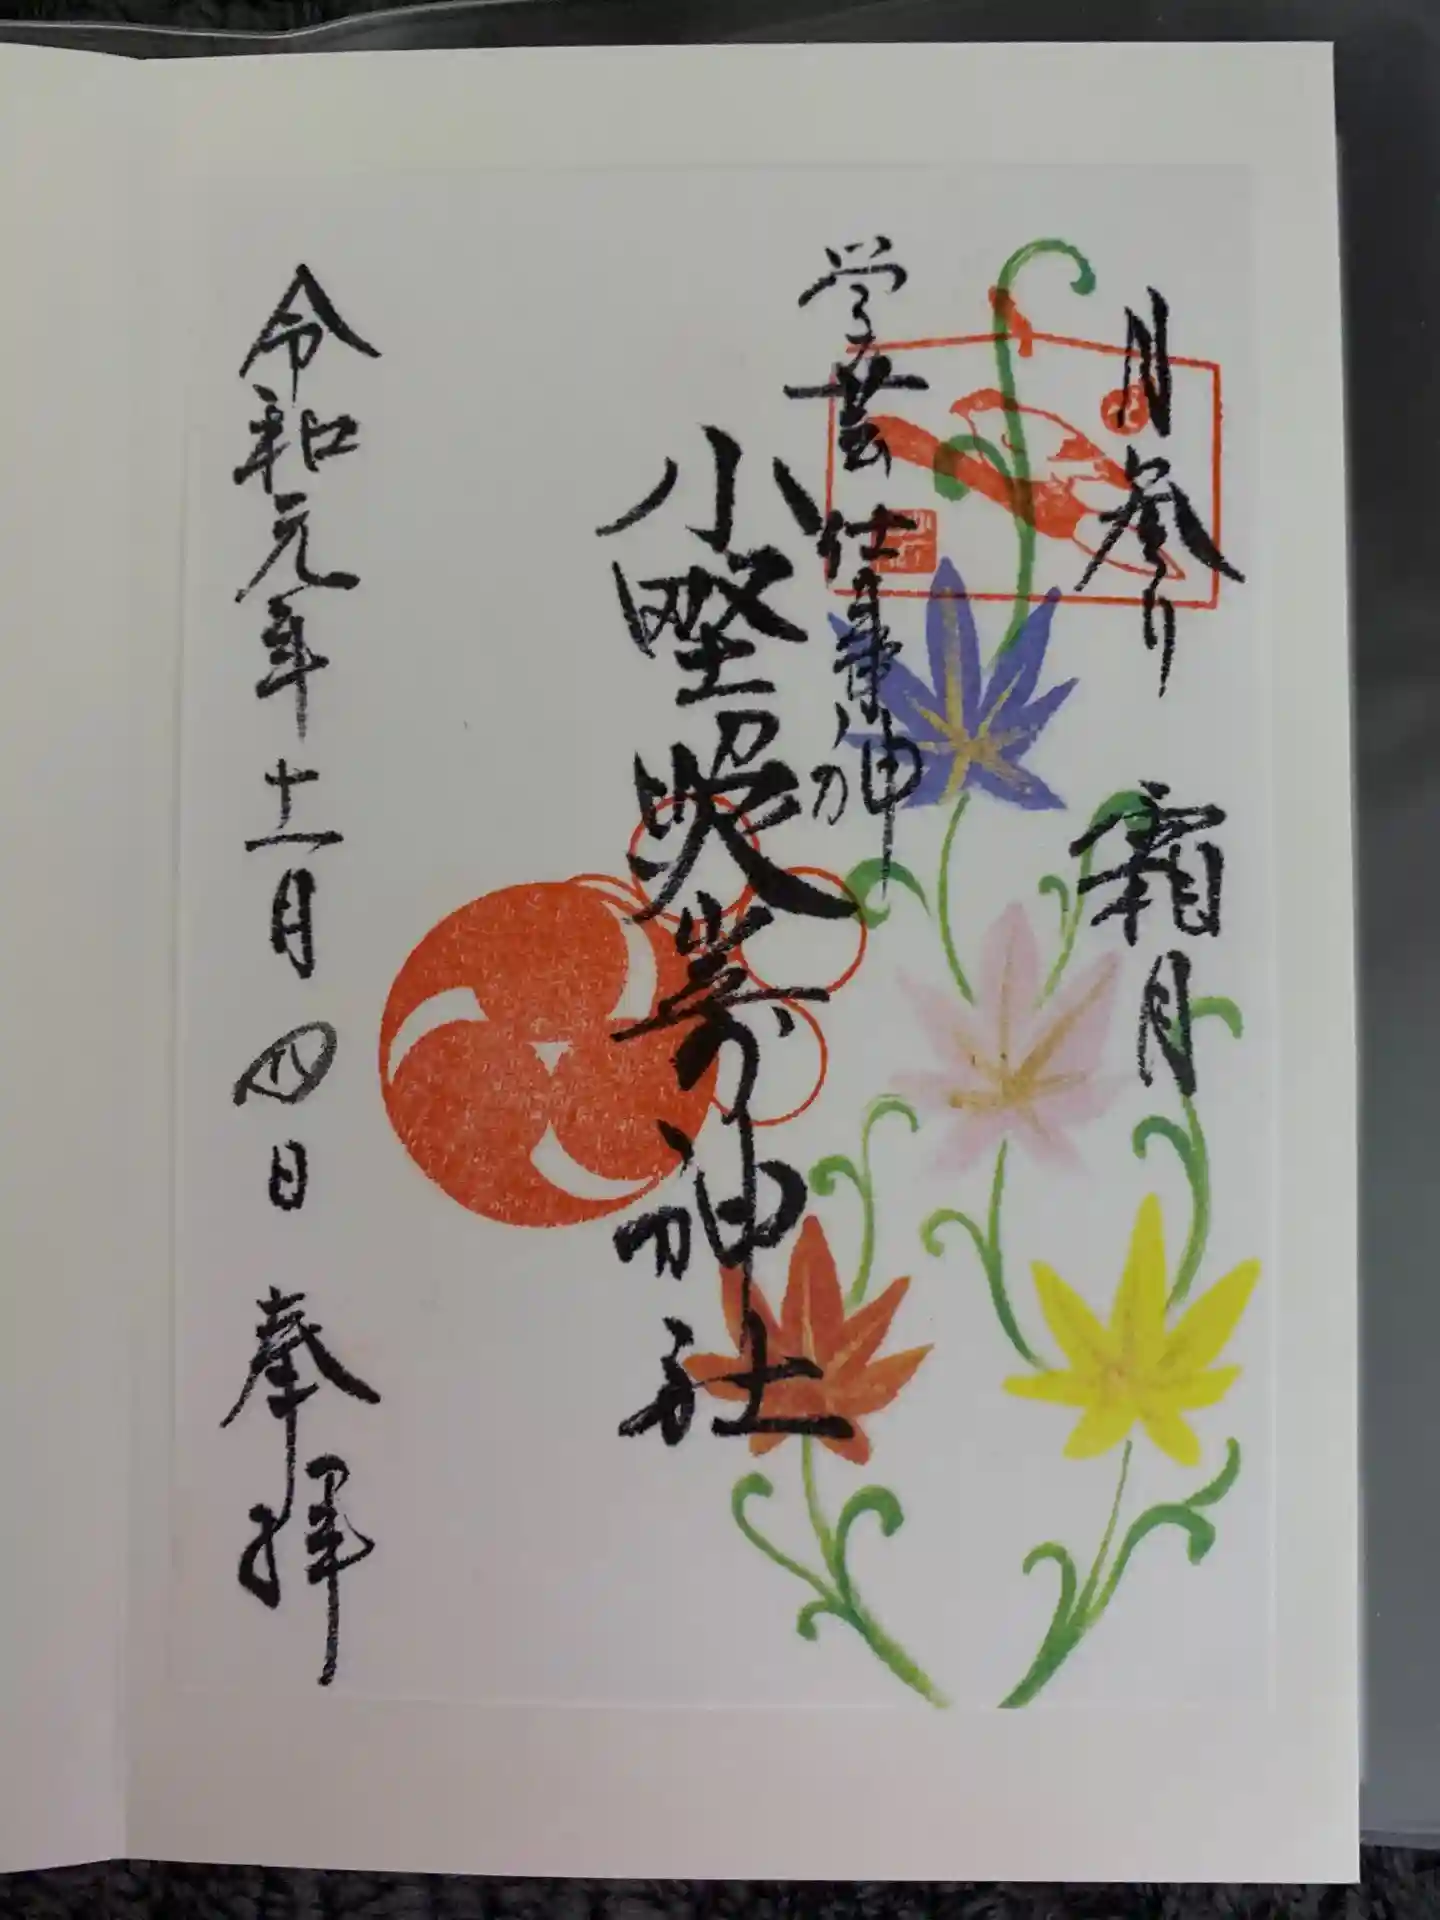 月参り 霜月
学芸 仕事 神
小野照嵜神社
令和元年十一月四日 奉拝